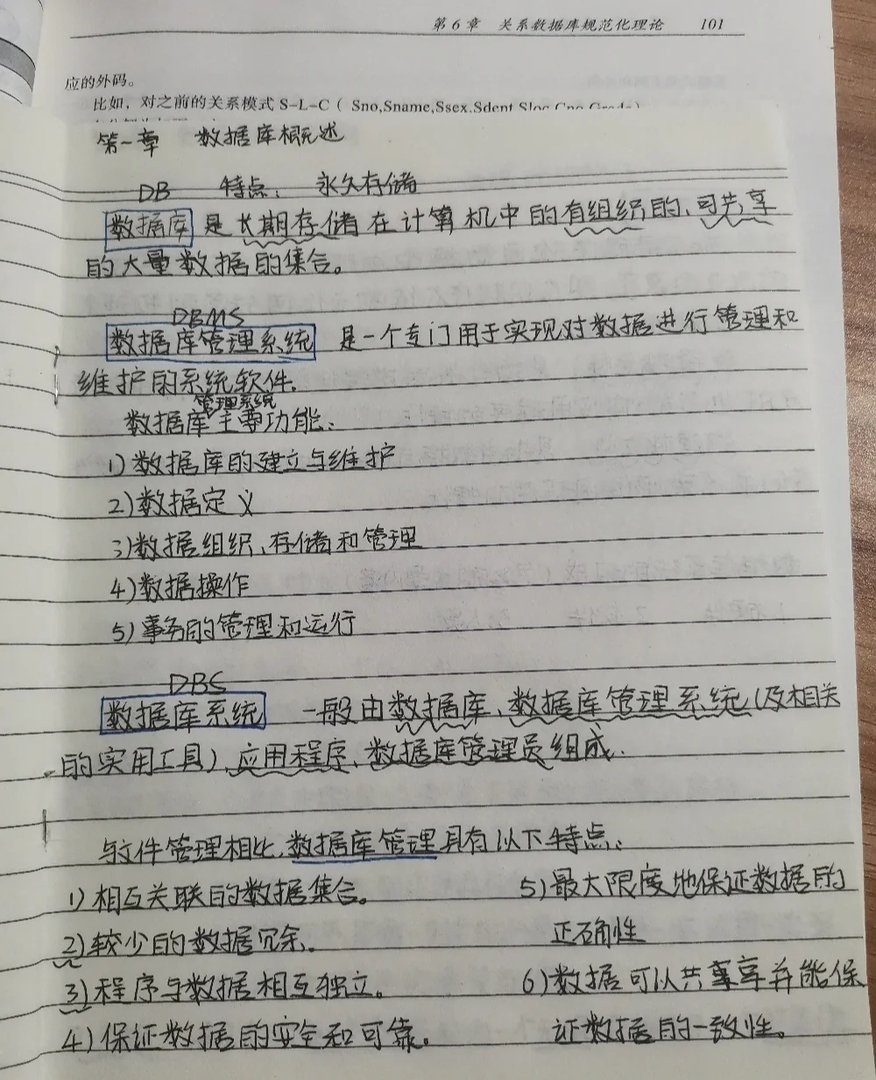 第6章 关系数据库规范化理论 101
应的外码。
比如，对之前的关系模式 S-L-C ( Sno,Sname,Ssex,Sdept,Sloc,Cno,Grade)
第一章 数据库概述
DB 特点: 永久存储
数据库 是长期存储在计算机中的有组织的、可共享
的大量数据的集合。
DBMS
数据库管理系统 是一个专门用于实现对数据进行管理和
维护的系统软件.
管理系统
数据库主要功能:
1)数据库的建立与维护
2)数据定义
3)数据组织、存储和管理
4)数据操作
5)事务的管理和运行
DBS
数据库系统 一般由数据库、数据库管理系统(及相关
的实用工具)、应用程序、数据库管理员组成.
与文件管理相比,数据库管理具有以下特点:
1)相互关联的数据集合。
2)较少的数据冗余.
3)程序与数据相互独立。
4)保证数据的安全和可靠。
5)最大限度地保证数据的
正确性
6)数据可以共享并能保
证数据的一致性。